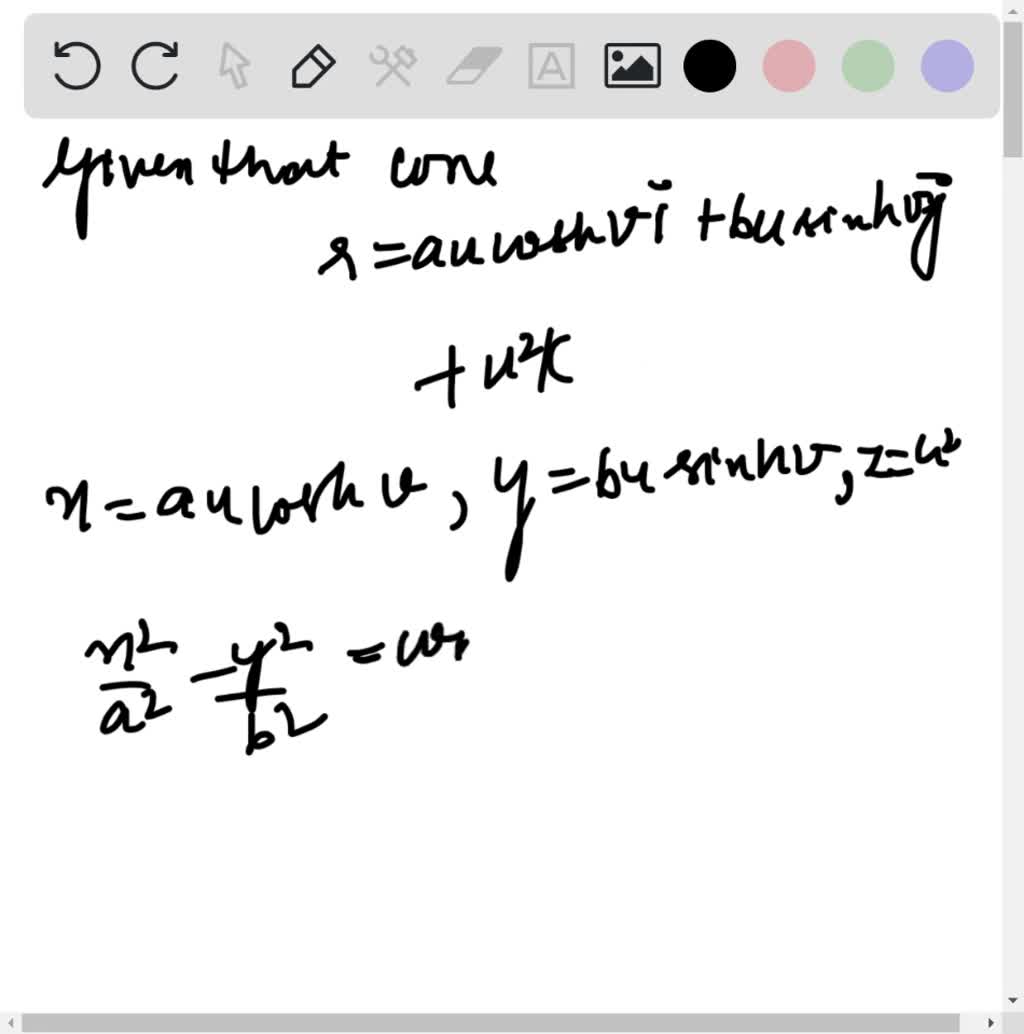 A
Given that cone
r = au cosh v i + bu sinh v j
+ u²k
x = au cosh v, y = bu sinh v, z = u²
x²/a² - y²/b² = co